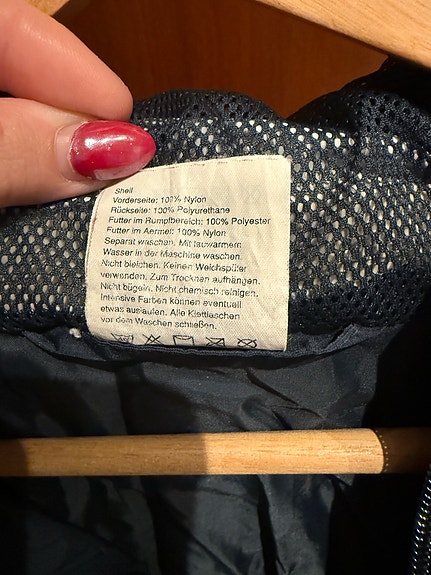 Shell
Vorderseite: 100% Nylon
Rückseite: 100% Polyurethane
Futter im Rumpfbereich: 100% Polyester
Futter im Aermel: 100% Nylon
Separat waschen. Mit lauwarmem
Wasser in der Maschine waschen.
Nicht bleichen. Keinen Weichspüler
verwenden. Zum Trocknen aufhängen.
Nicht bügeln. Nicht chemisch reinigen.
Intensive Farben können eventuell
etwas auslaufen. Alle Kletttaschen
vor dem Waschen schließen.